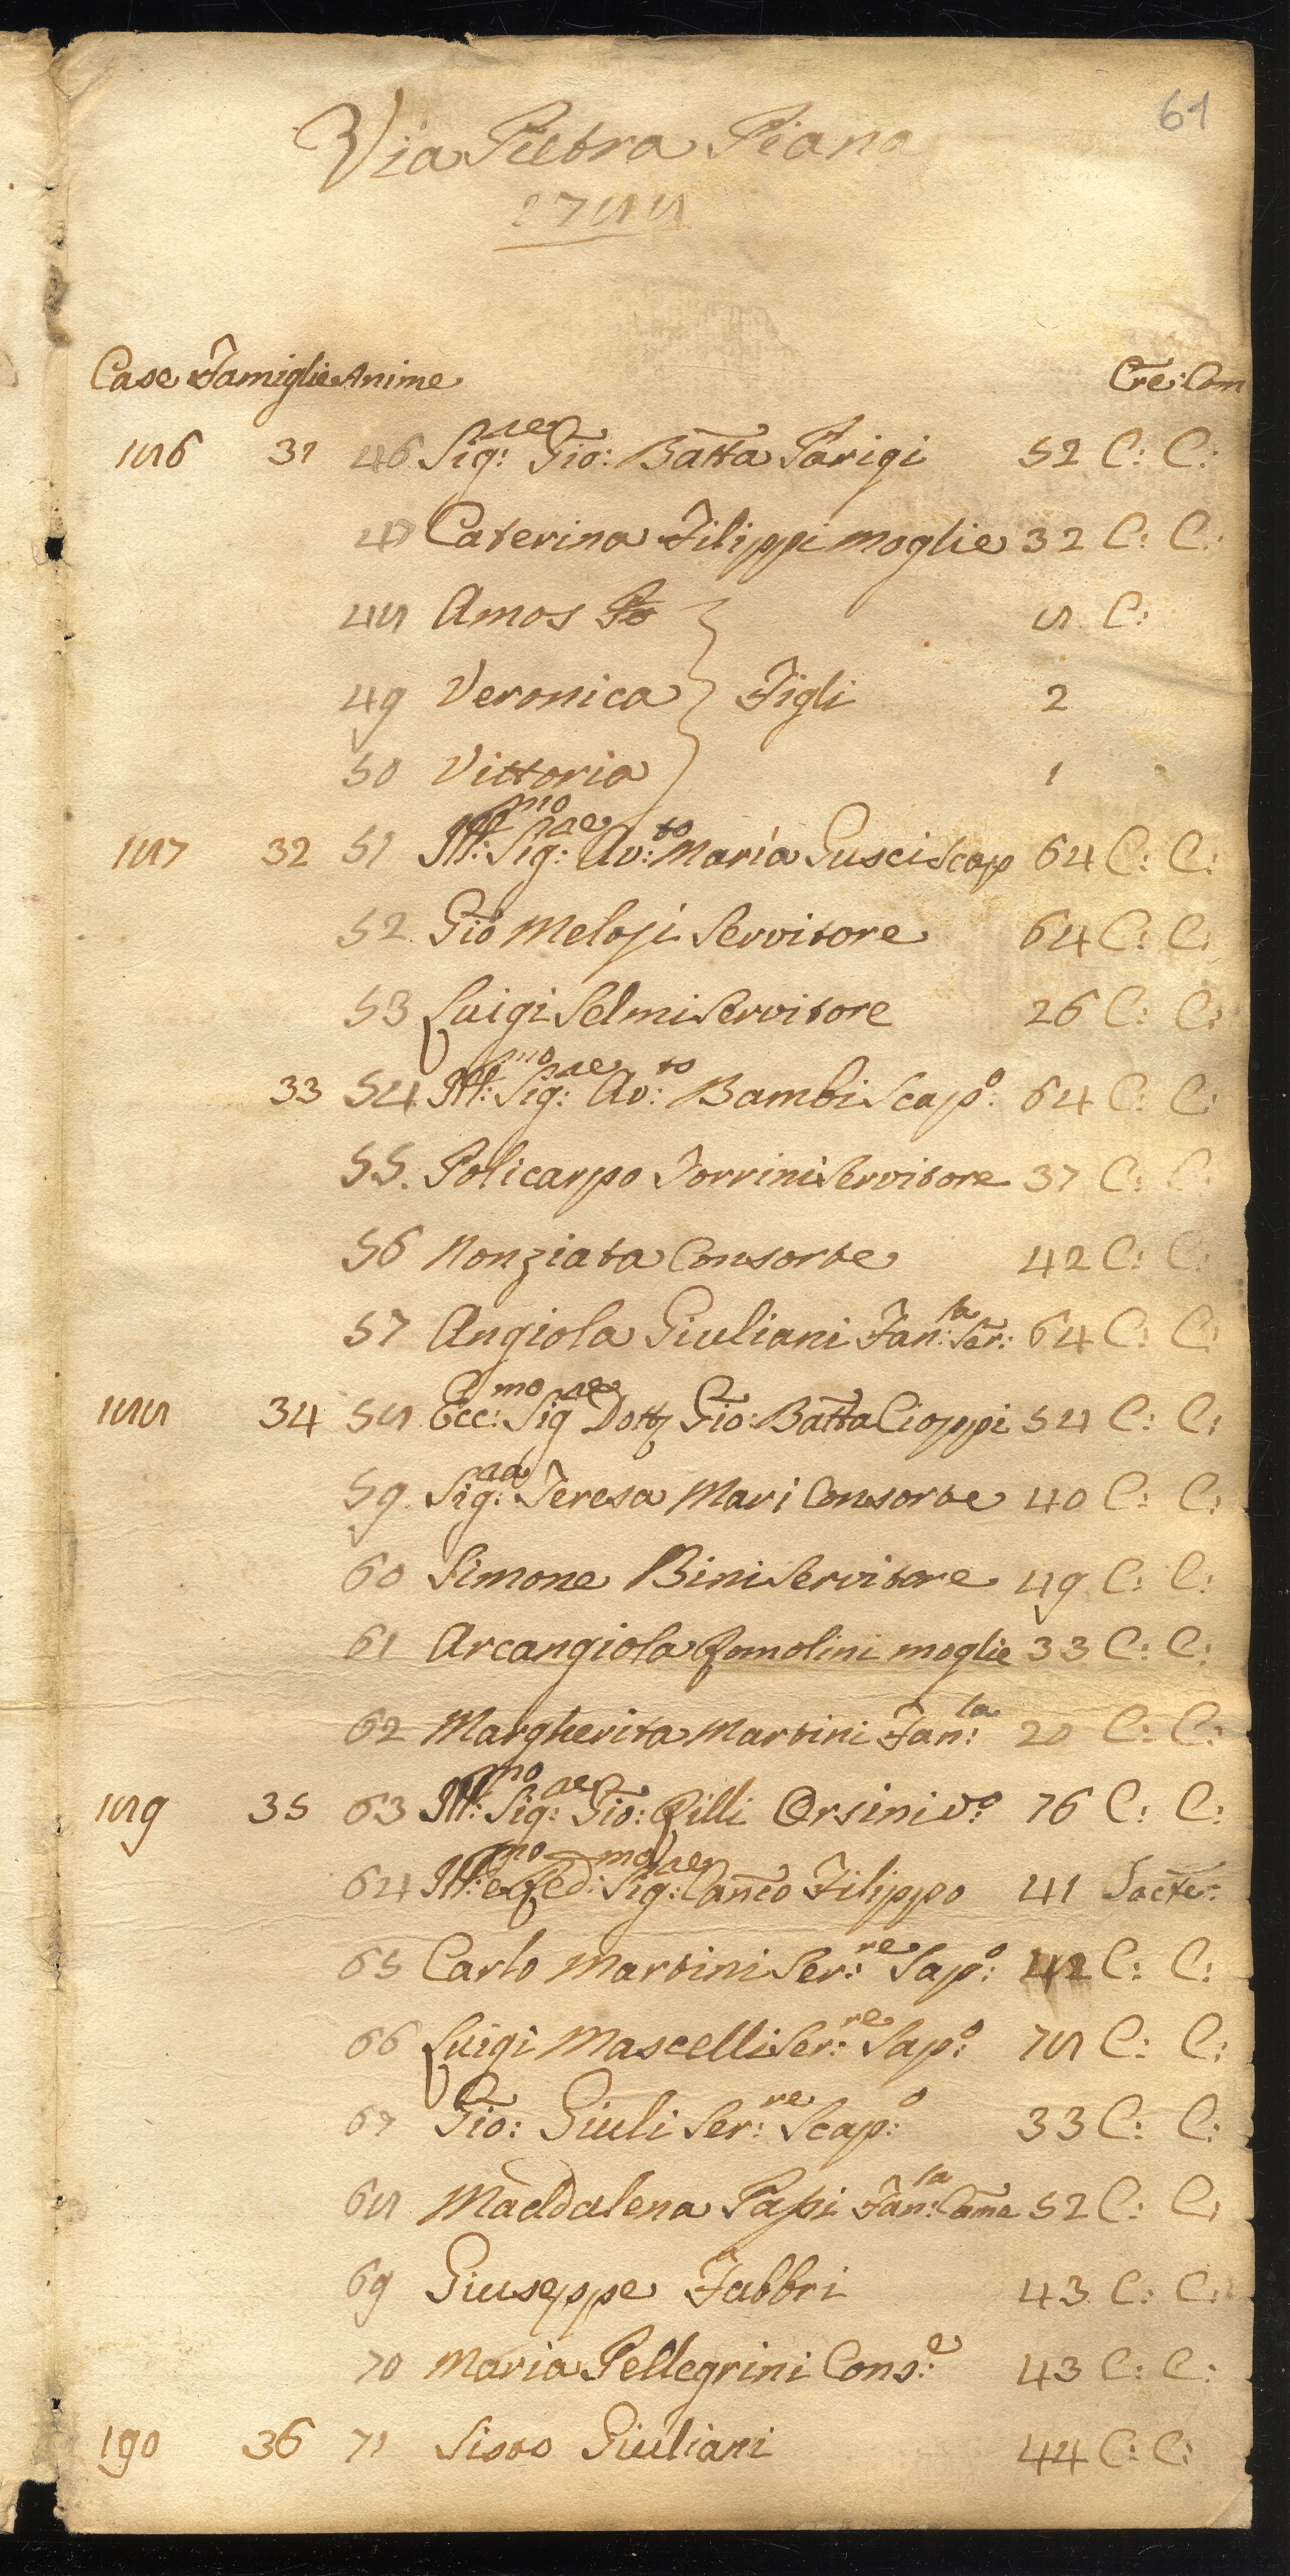 61
Via Pietra Piana
1788
Case Famiglie Anime Cre: Com
186 31 46 Sig:re Gio: Batta Parigi 52 C: C:
47 Caterina Filippi Moglie 32 C: C:
48 Amos 8 C:
49 Veronica } Figli 2
50 Vittoria 1
187 32 51 Ill:mo Sig:re Av:to Maria Gusci Scap 64 C: C:
52 Gio Meloji Servitore 64 C: C:
53 Luigi Selmi Servitore 26 C: C:
33 54 Ill:mo Sig:re Av:to Bambi Scap:o 64 C: C:
55. Policarpo Torrini Servitore 37 C: C:
56 Nonziata Consorte 42 C: C:
57 Angiola Giuliani Fan:la Ser: 64 C: C:
188 34 58 Ecc:mo Sig:re Dott Gio: Batta Cioppi 54 C: C:
59 Sig:ra Teresa Mari Consorte 40 C: C:
60 Simone Bini Servitore 49 C: C:
61 Arcangiola Romolini moglie 33 C: C:
62 Margherita Martini Fan:la 20 C: C:
189 35 63 Ill:mo Sig:re Gio: Rilli Orsini V:o 76 C: C:
64 Ill:mo e Red:mo Sig:re Canco Filippo 41 Sacte:
65 Carlo Martini Ser:re Sap:o 42 C: C:
66 Luigi Mascelli Ser:re Sap:o 78 C: C:
67 Gio: Giuli Ser:re Scap:o 33 C: C:
68 Maddalena Papi Fan:la Came 52 C: C:
69 Giuseppe Fabbri 43 C: C:
70 Maria Pellegrini Cons:e 43 C: C:
190 36 71 Sisto Giuliani 44 C: C: